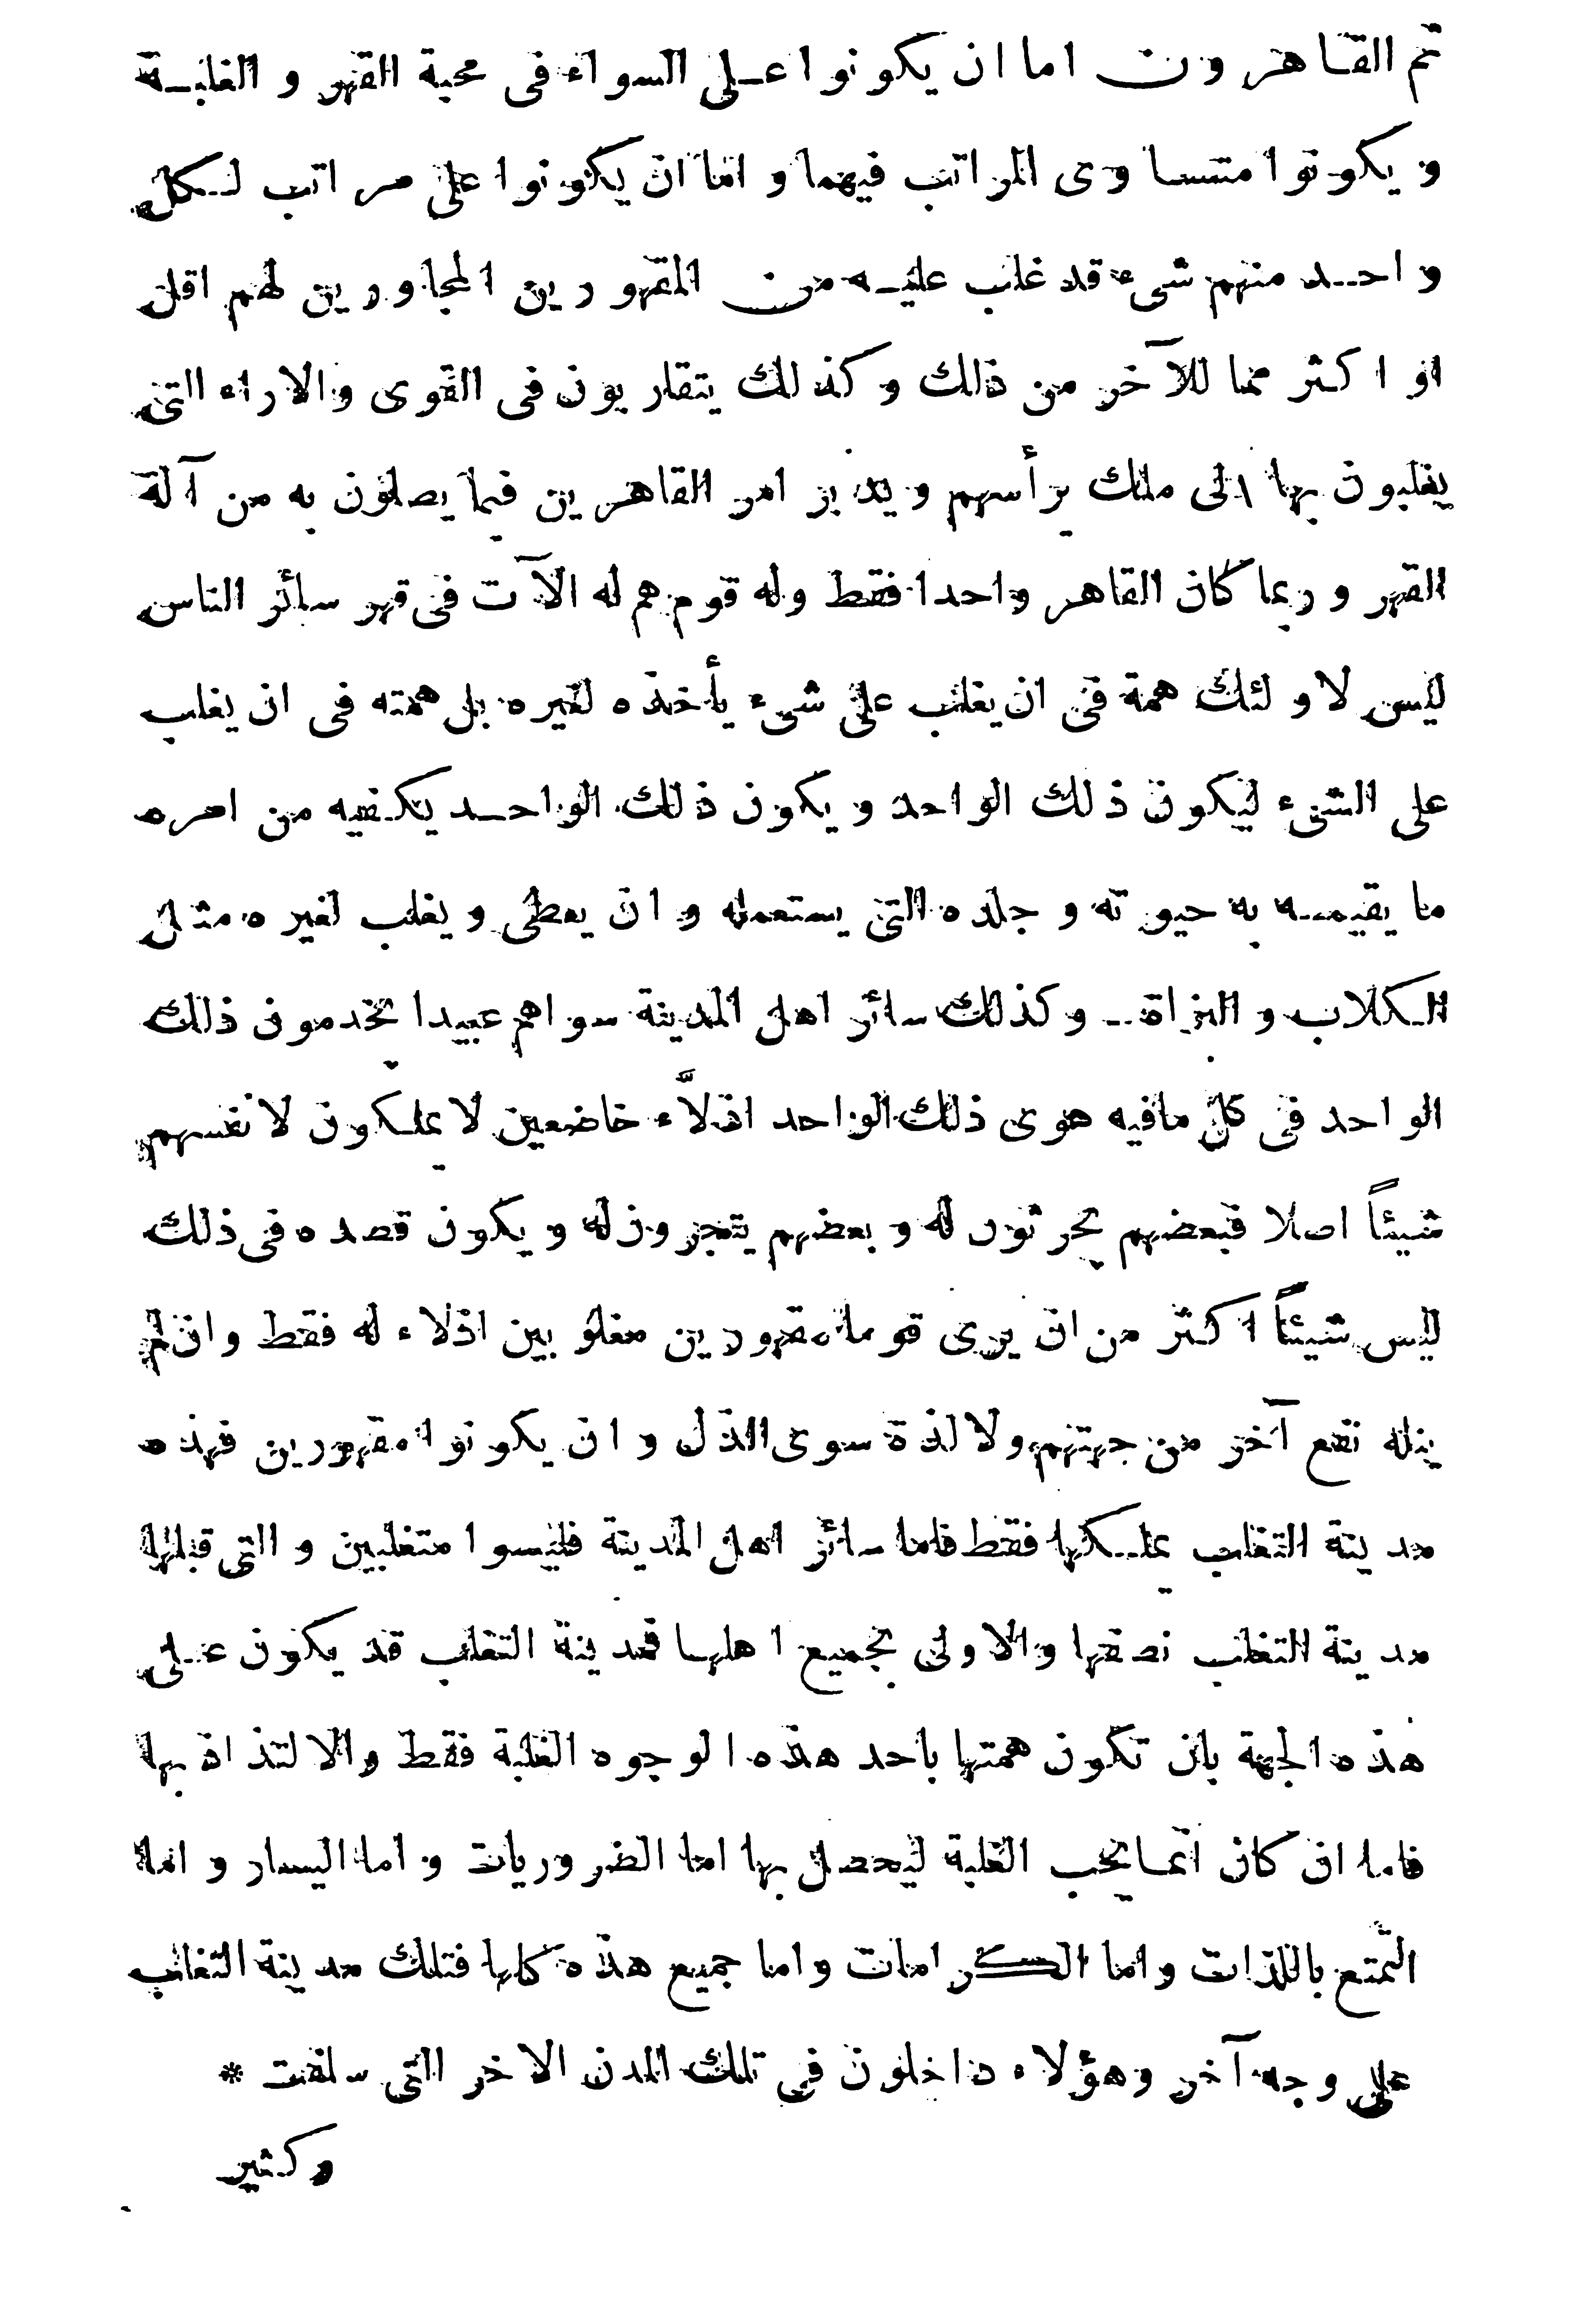 ثم القاهرون اما ان يكونوا على السواء فى محبة القهر و الغلبة
و يكونوا متساوى المراتب فيهما و اما ان يكونوا على مراتب لكل
واحد منهم شىء قد غلب عليه من المقهورين المجاورين لهم اقل
او اكثر مما للآخر من ذلك وكذلك يتقاربون فى القوى والاراء التى
يغلبون بها الى ملك يرأسهم ويدبر امر القاهرين فيما يصلون به من آلة
القهر و ربما كان القاهر واحدا فقط وله قوم هم له الآت فى قهر سائر الناس
ليس لاولئك همة فى ان يغلب على شىء يأخذه لغيره بل همته فى ان يغلب
على الشىء ليكون ذلك الواحد و يكون ذلك الواحد يكفيه من امره
ما يقيمه به حيوته و جلده التى يستعمله و ان يعطى و يغلب لغيره مثل
الكلاب و البزاة و كذلك سائر اهل المدينة سواهم عبيدا يخدمون ذلك
الواحد فى كل مافيه هوى ذلك الواحد اذلاَّء خاضعين لا يملكون لانفسهم
شيئاً اصلا فبعضهم يحرثون له و بعضهم يتجرون له و يكون قصده فى ذلك
ليس شيئاً اكثر من ان يرى قوما مقهورين مغلوبين اذلاء له فقط وان لم
ينله نفع آخر من جهتهم ولا لذة سوى الذل و ان يكونوا مقهورين فهذه
مدينة التغلب بملكها فقط فاما سائر اهل المدينة فليسوا متغلبين و التى قبلها
مدينة التغلب نصفها و الاولى بجميع اهلها فمدينة التغلب قد يكون على
هذه الجهة بان تكون همتها باحد هذه الوجوه الغلبة فقط والالتذاذ بها
فاما ان كان انما يحب الغلبة ليحصل بها اما الضروريات و اما اليسار و اما
التمتع باللذات واما الكرامات واما جميع هذه كلها فتلك مدينة التغلب
على وجه آخر و هؤلاء داخلون فى تلك المدن الاخر التى سلفت *
وكثير